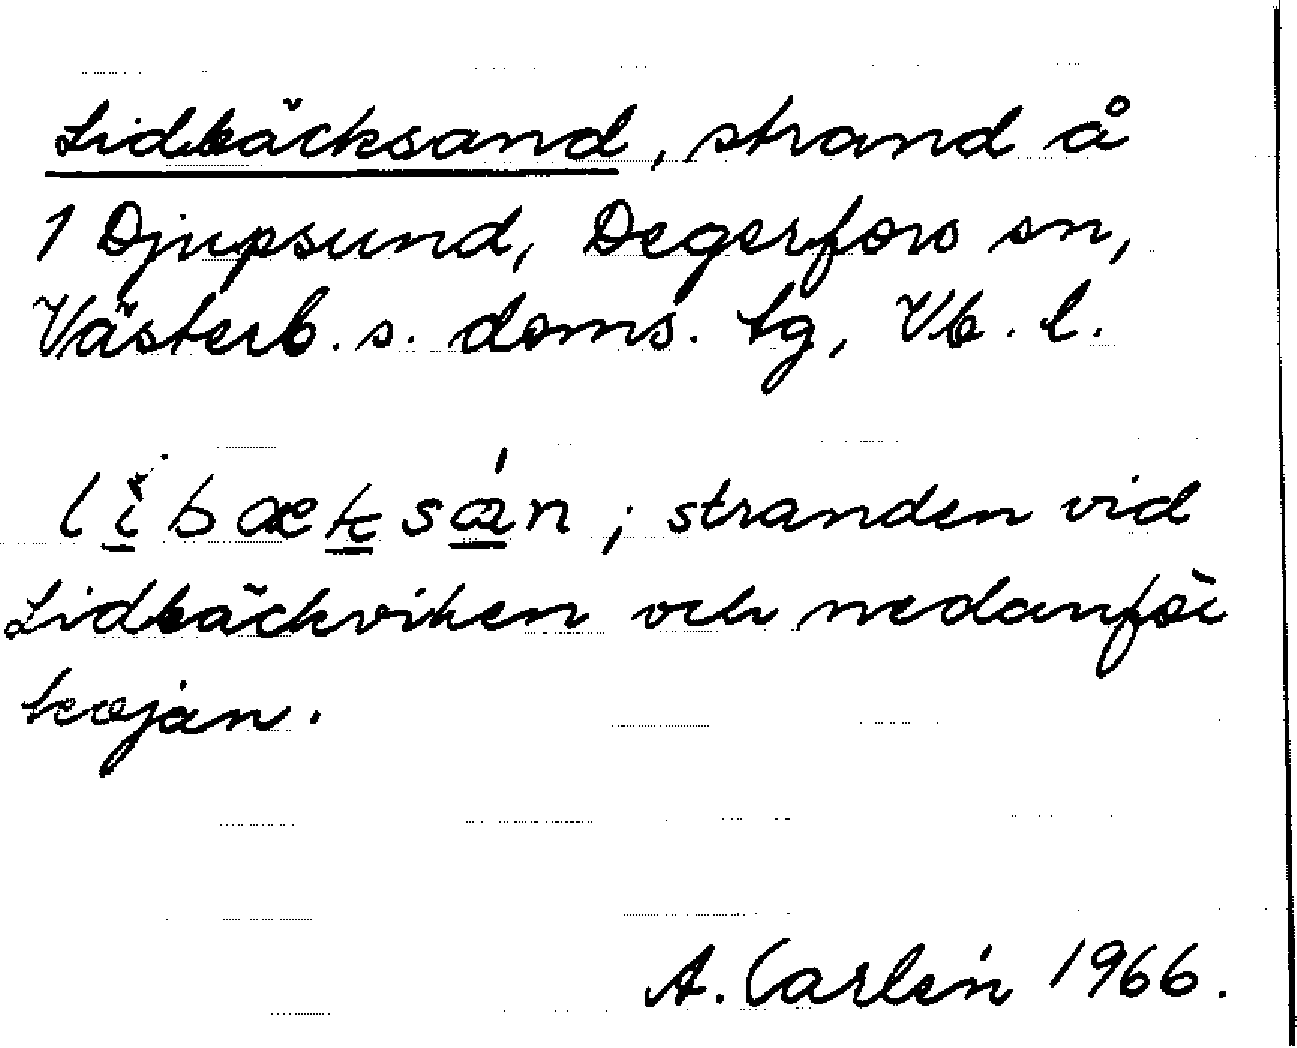 Lidbäcksand, strand å
1 Djupsund, Degerfors sn,
Västerb. s. doms. tg, Vb. l.
stranden vid
Lidbäckviken och nedanför
kojan.
A. Carlén 1966.